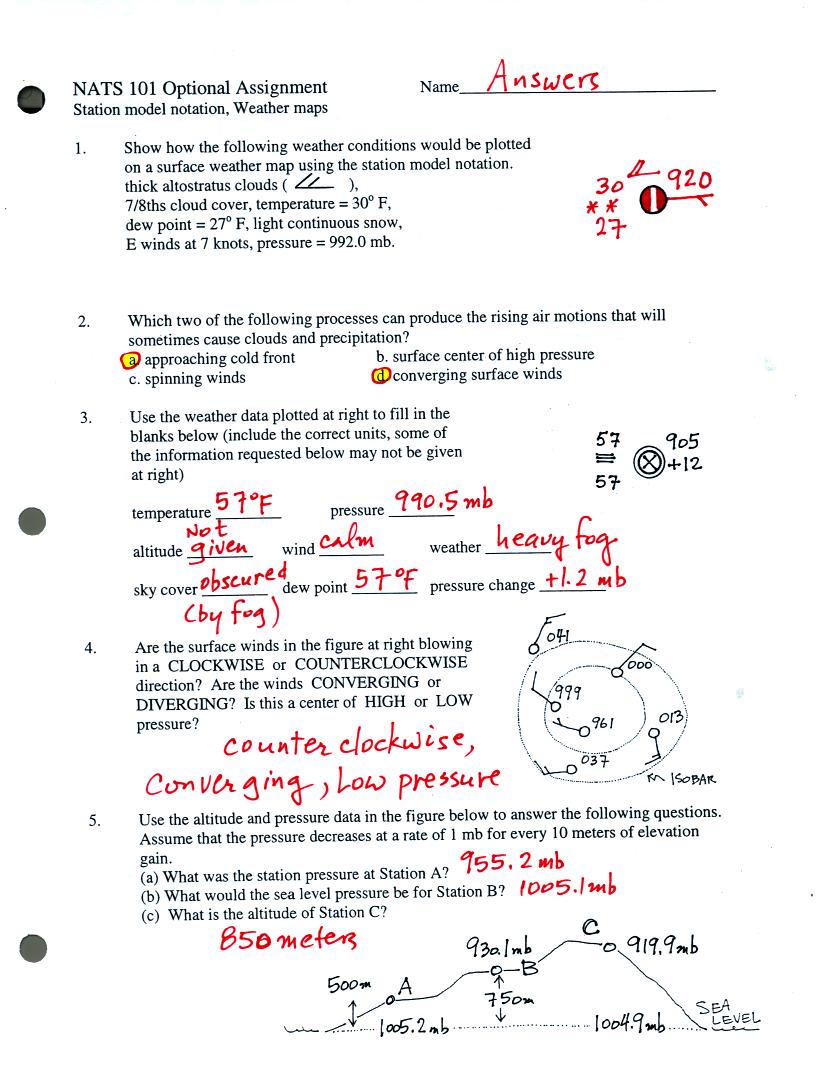 NATS 101 Optional Assignment
Name Answers
Station model notation, Weather maps
1. Show how the following weather conditions would be plotted
on a surface weather map using the station model notation.
thick altostratus clouds ( ),
7/8ths cloud cover, temperature = 30° F,
dew point = 27° F, light continuous snow,
E winds at 7 knots, pressure = 992.0 mb.
30 920
* *
27
2. Which two of the following processes can produce the rising air motions that will
sometimes cause clouds and precipitation?
a. approaching cold front b. surface center of high pressure
c. spinning winds d. converging surface winds
3. Use the weather data plotted at right to fill in the
blanks below (include the correct units, some of
the information requested below may not be given
at right)
57 905
+12
57
temperature 57°F pressure 990.5 mb
altitude Not given wind calm weather heavy fog
sky cover obscured dew point 57°F pressure change +1.2 mb
(by fog)
4. Are the surface winds in the figure at right blowing
in a CLOCKWISE or COUNTERCLOCKWISE
direction? Are the winds CONVERGING or
DIVERGING? Is this a center of HIGH or LOW
pressure?
counter clockwise,
Converging, Low pressure
041
000
999
961
013
037
ISOBAR
5. Use the altitude and pressure data in the figure below to answer the following questions.
Assume that the pressure decreases at a rate of 1 mb for every 10 meters of elevation
gain.
(a) What was the station pressure at Station A? 955.2 mb
(b) What would the sea level pressure be for Station B? 1005.1 mb
(c) What is the altitude of Station C?
850 meters
C
930.1mb 919.9mb
B
500m A
750m
SEA
LEVEL
1005.2mb 1004.9mb